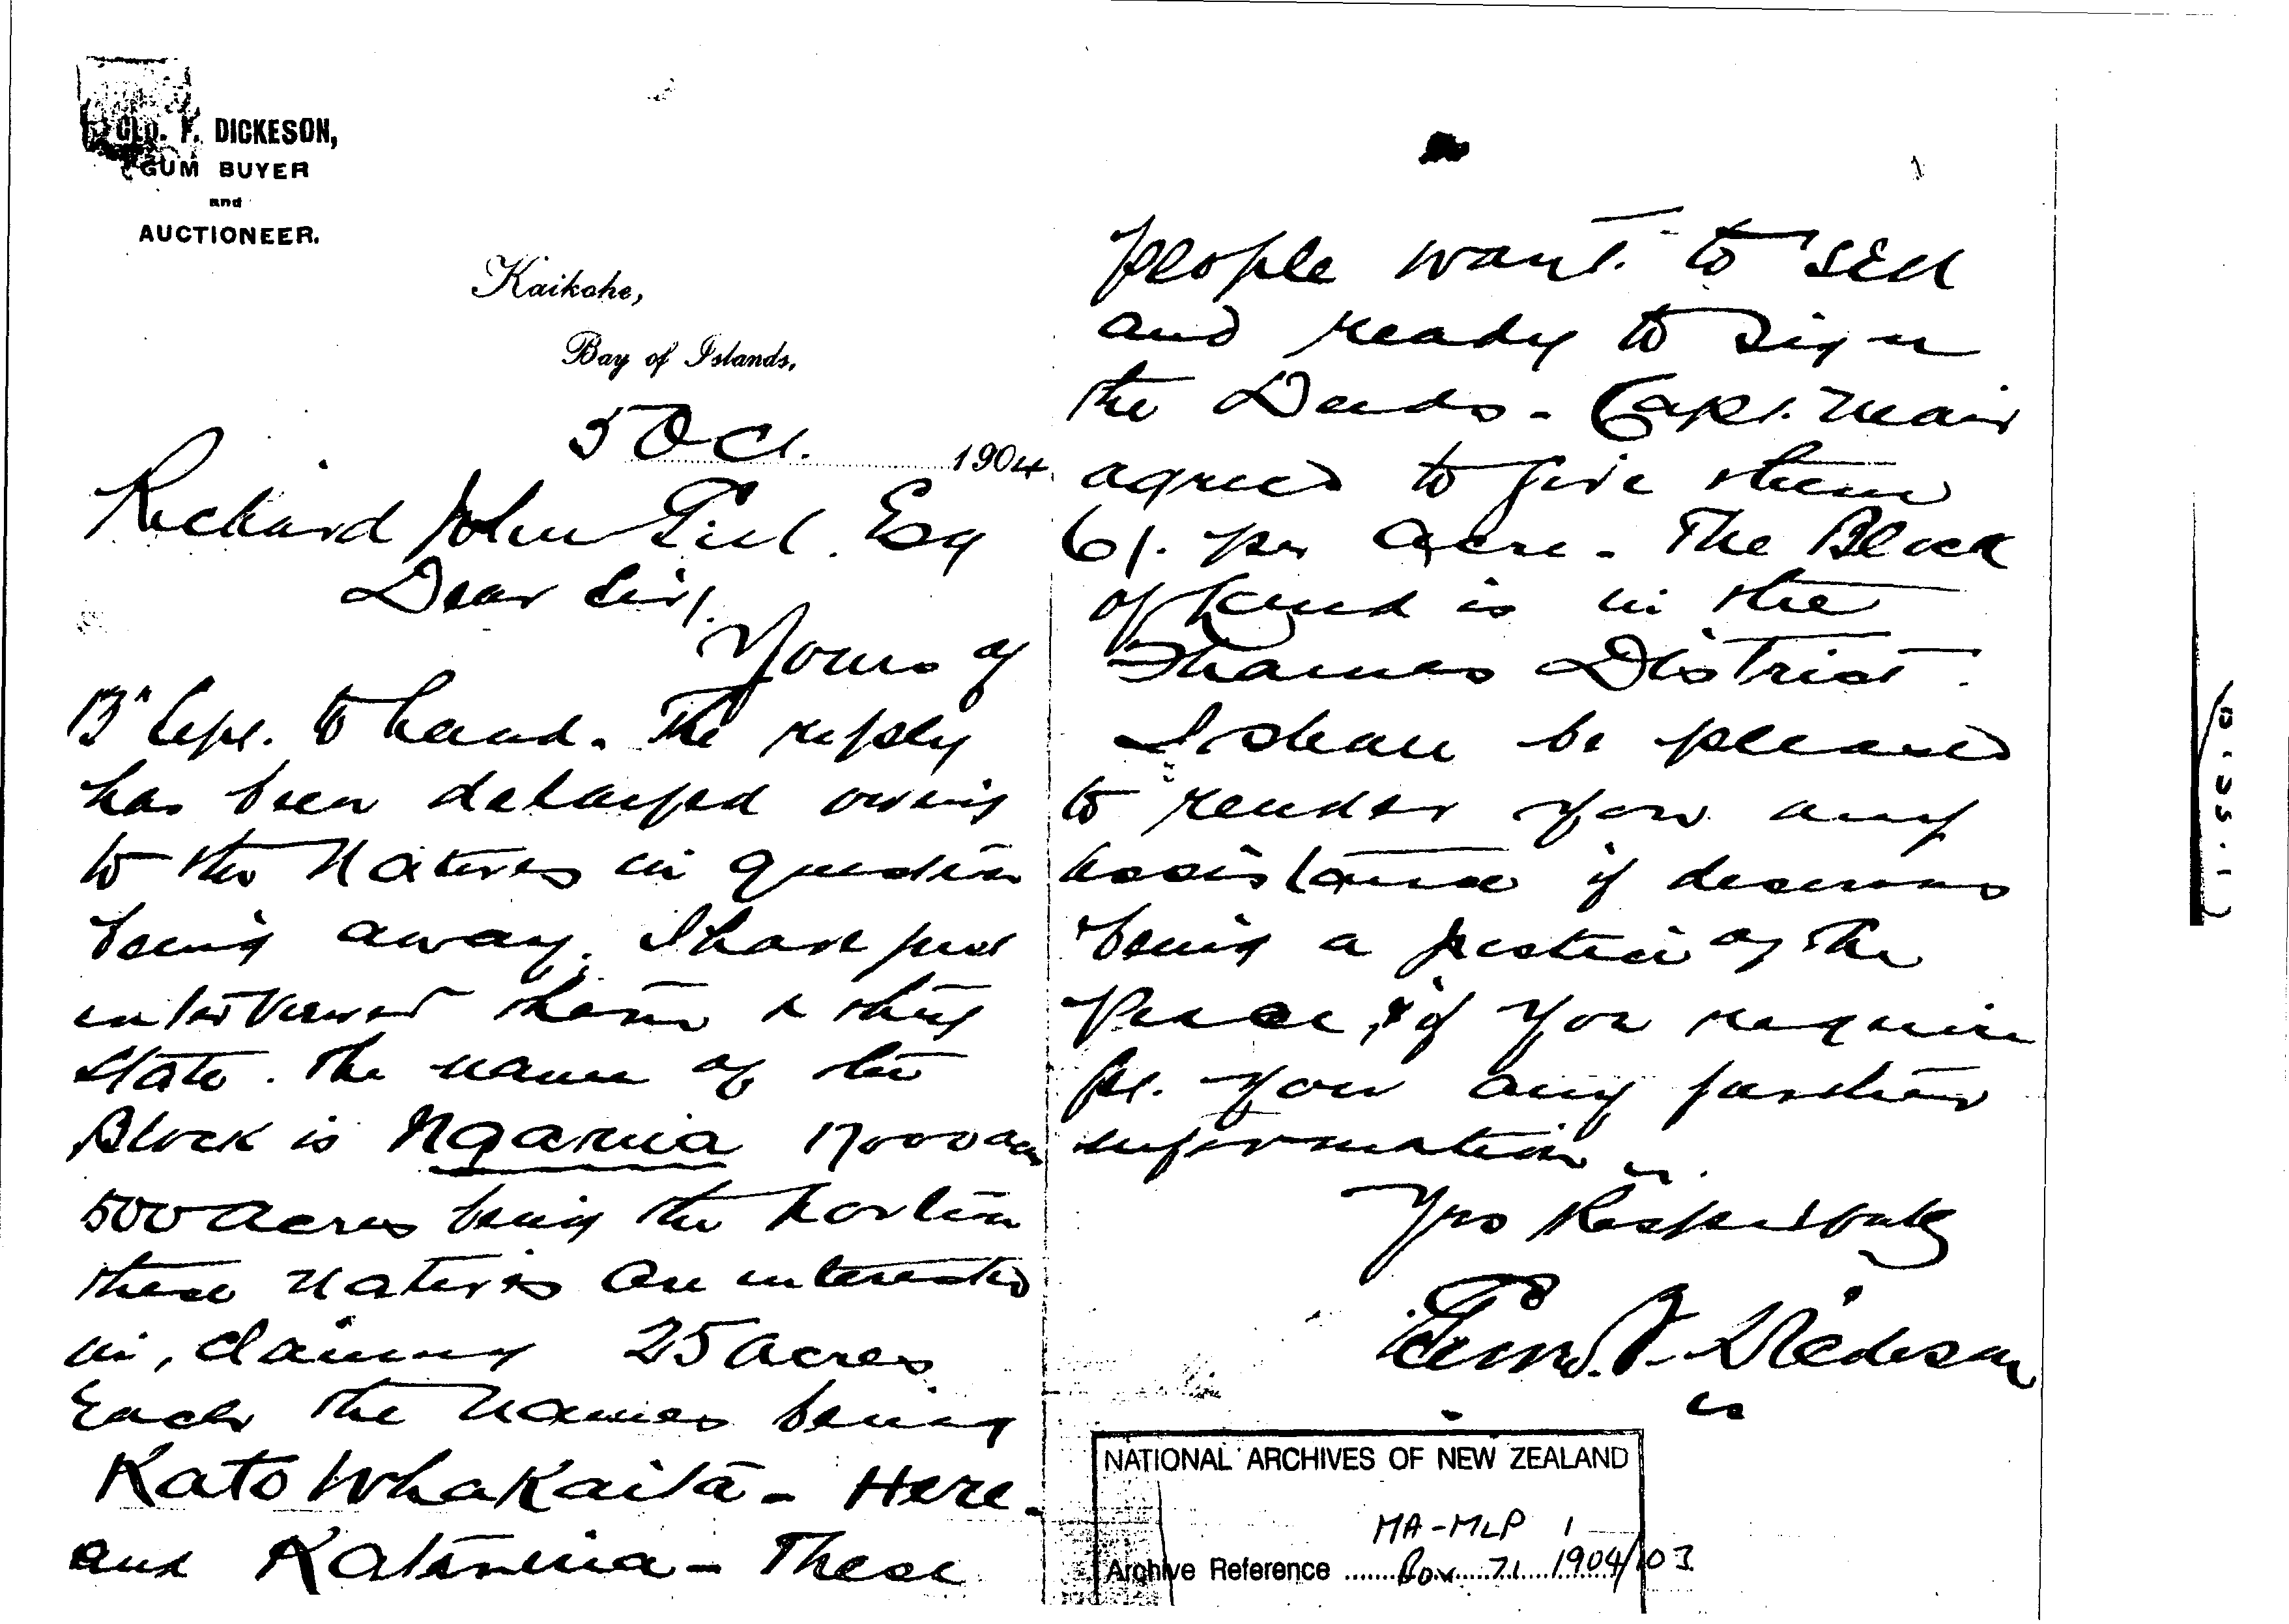 GEO. F. DICKESON,
GUM BUYER
and
AUCTIONEER.
Kaikohe,
Bay of Islands,
5 Oct. 1904
Richard John Gill. Esq
Dear Sir/.
Yours of
13" Sept. to hand. The reply
has been delayed owing
to the Natives in question
being away. I have just
interviewed them & they
state. The name of the
Block is Ngaria 17000 acres
500 acres being the portion
these natives are interested
in, claiming 25 acres
Each the names being
Kato Whakaita - Here.
and Katarina - These
people want to sell
and ready to sign
the Deeds - Capt. Mair
agreed to give them
6/. per acre - The Block
of land is in the
Thames District.
I shall be pleased
to render you any
assistance if desirous
being a Justice of the
Peace, & if you require
you any further
information
Yrs Respectfully
F. Dickeson
NATIONAL ARCHIVES OF NEW ZEALAND
MA-MLP 1
Archive Reference ........Box 71 1904/103